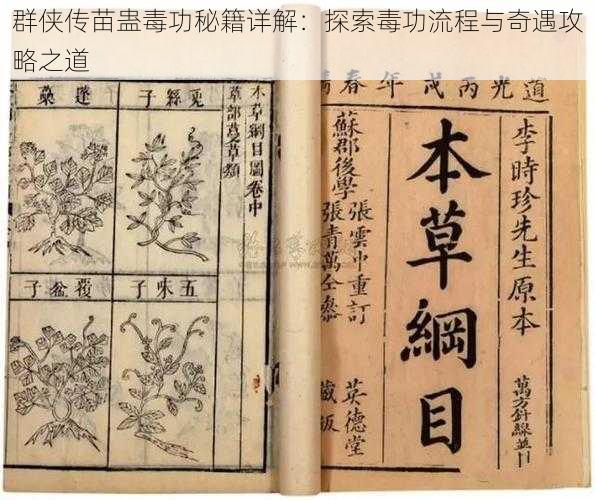 群侠传苗蛊毒功秘籍详解：探索毒功流程与奇遇攻
略之道
道光丙戌年春
李時珍先生原本
萬方針線並
本草綱目
蘇郡後學
張雲中重訂
張青萬仝參
英德堂
藏板
本草綱目圖卷中
草部蔓草類
菟絲子
蓬蘽
五味子
覆盆子